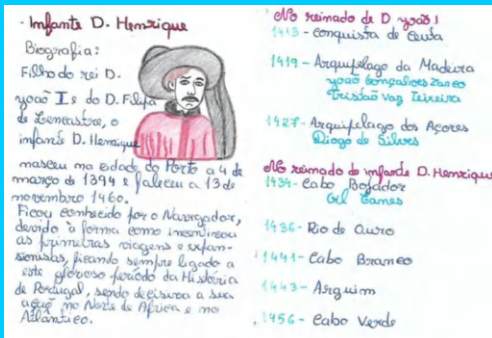 - Infante D. Henrique
Biografia:
Filho do rei D.
yoaõ I e de D. Filipa
de Lencastre, o
infante D. Henrique
nasceu na cidade do Porto a 4 de
março de 1394 e faleceu a 13 de
novembro 1460.
Ficou conhecido por o Navegador,
devido à forma como incentivou
as primeiras viagens e expan-
sionistas, ficando sempre ligado a
este glorioso período da História
de Portugal, sendo decisiva a sua
ação no Norte de África e no
Atlântico.
No reinado de D. yoaõ I
1415 - Conquista de Ceuta
1419 - Arquipélago da Madeira
yoaõ Gonçalves Zarco
Tristão Vaz Teixeira
1427 - Arquipélago dos Açores
Diogo de Silves
No reinado do infante D. Henrique
1434 - Cabo Bojador
Gil Eanes
1436 - Rio de Ouro
1441 - Cabo Branco
1443 - Arguim
1456 - Cabo Verde